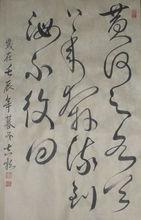 黄河之水天
上来奔流到
海不復回
歲在壬辰年